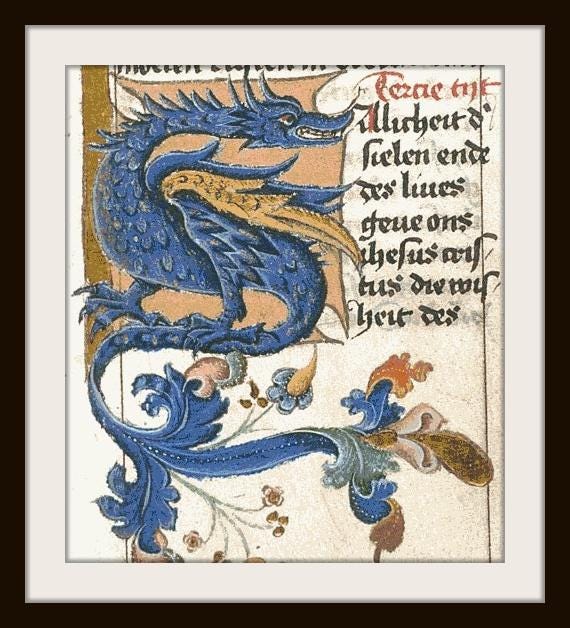 Tercie tijt
Alicheit d'
sielen ende
des liues
geue ons
ihesus cris/
tus die wijs/
heit des